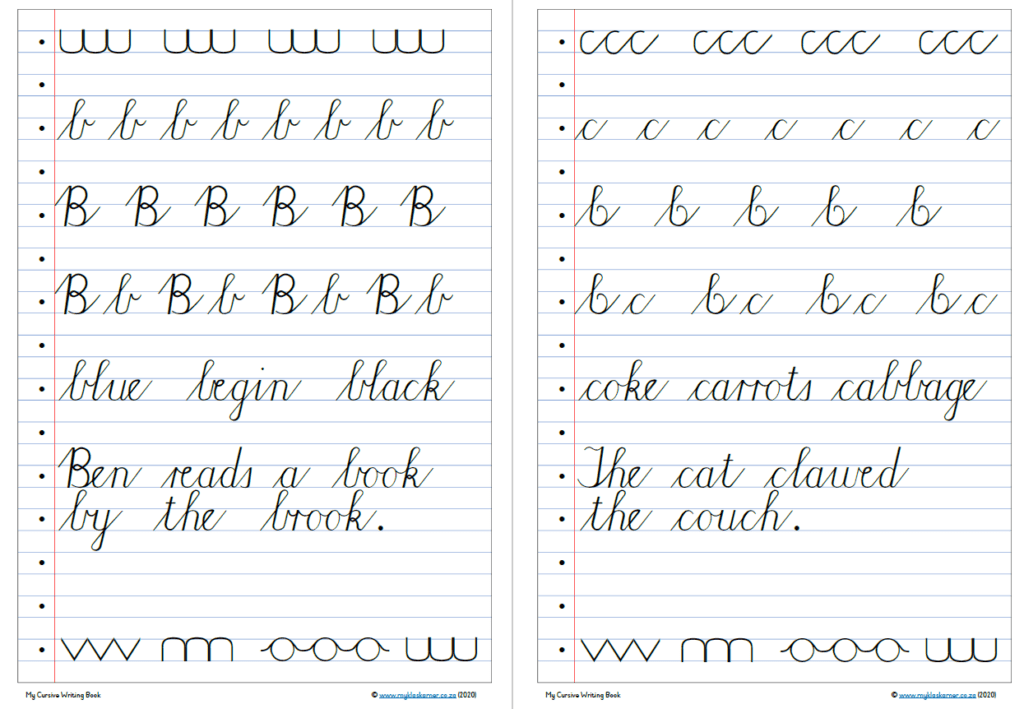 b b b b b b b b
B B B B B B
B b B b B b B b
blue begin black
Ben reads a book
by the brook.
My Cursive Writing Book
© www.myklaskamer.co.za (2020)
ccc ccc ccc ccc
c c c c c c c
b b b b b
b c b c b c b c
coke carrots cabbage
The cat clawed
the couch.
My Cursive Writing Book
© www.myklaskamer.co.za (2020)